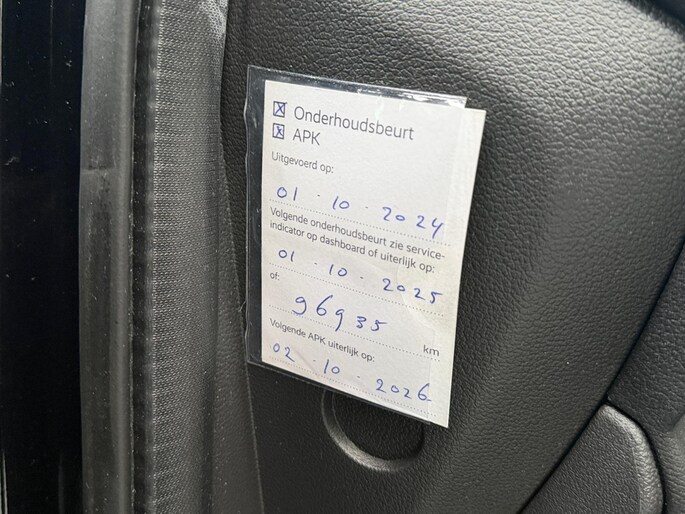 Onderhoudsbeurt
APK
Uitgevoerd op:
01 · 10 · 2024
Volgende onderhoudsbeurt zie service-
indicator op dashboard of uiterlijk op:
01 · 10 · 2025
of:
96935 km
Volgende APK uiterlijk op:
02 · 10 · 2026